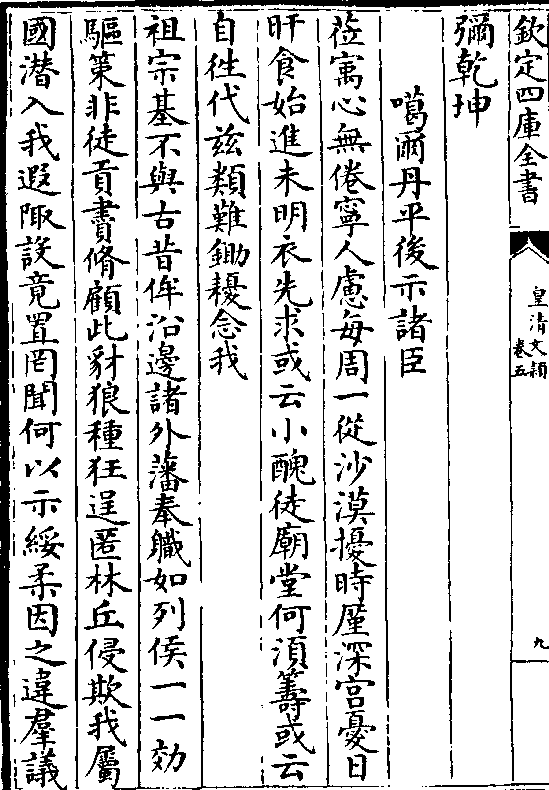 欽定四庫全書
皇清文穎
卷五
九
彌乾坤
噶爾丹平後示諸臣
莅寓心無倦寧人慮每周一從沙漠擾時廑深宫憂日
旰食始進未明衣先求或云小醜徒廟堂何湏籌或云
自徃代兹類難鋤耰念我
祖宗基不與古昔侔沿邊諸外藩奉職如列侯一一効
驅策非徒貢書脩顧此豺狼種狂逞匿林丘侵欺我屬
國潜入我遐陬設竟置罔聞何以示綏柔因之違羣議